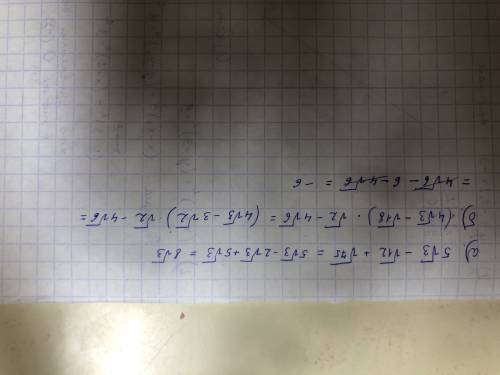 а) 5√3 − √12 + √75 = 5√3 − 2√3 + 5√3 = 8√3
б) (4√3 − √18) · √2 − 4√6 = (4√3 − 3√2) · √2 − 4√6 =
= 4√6 − 6 − 4√6 = −6